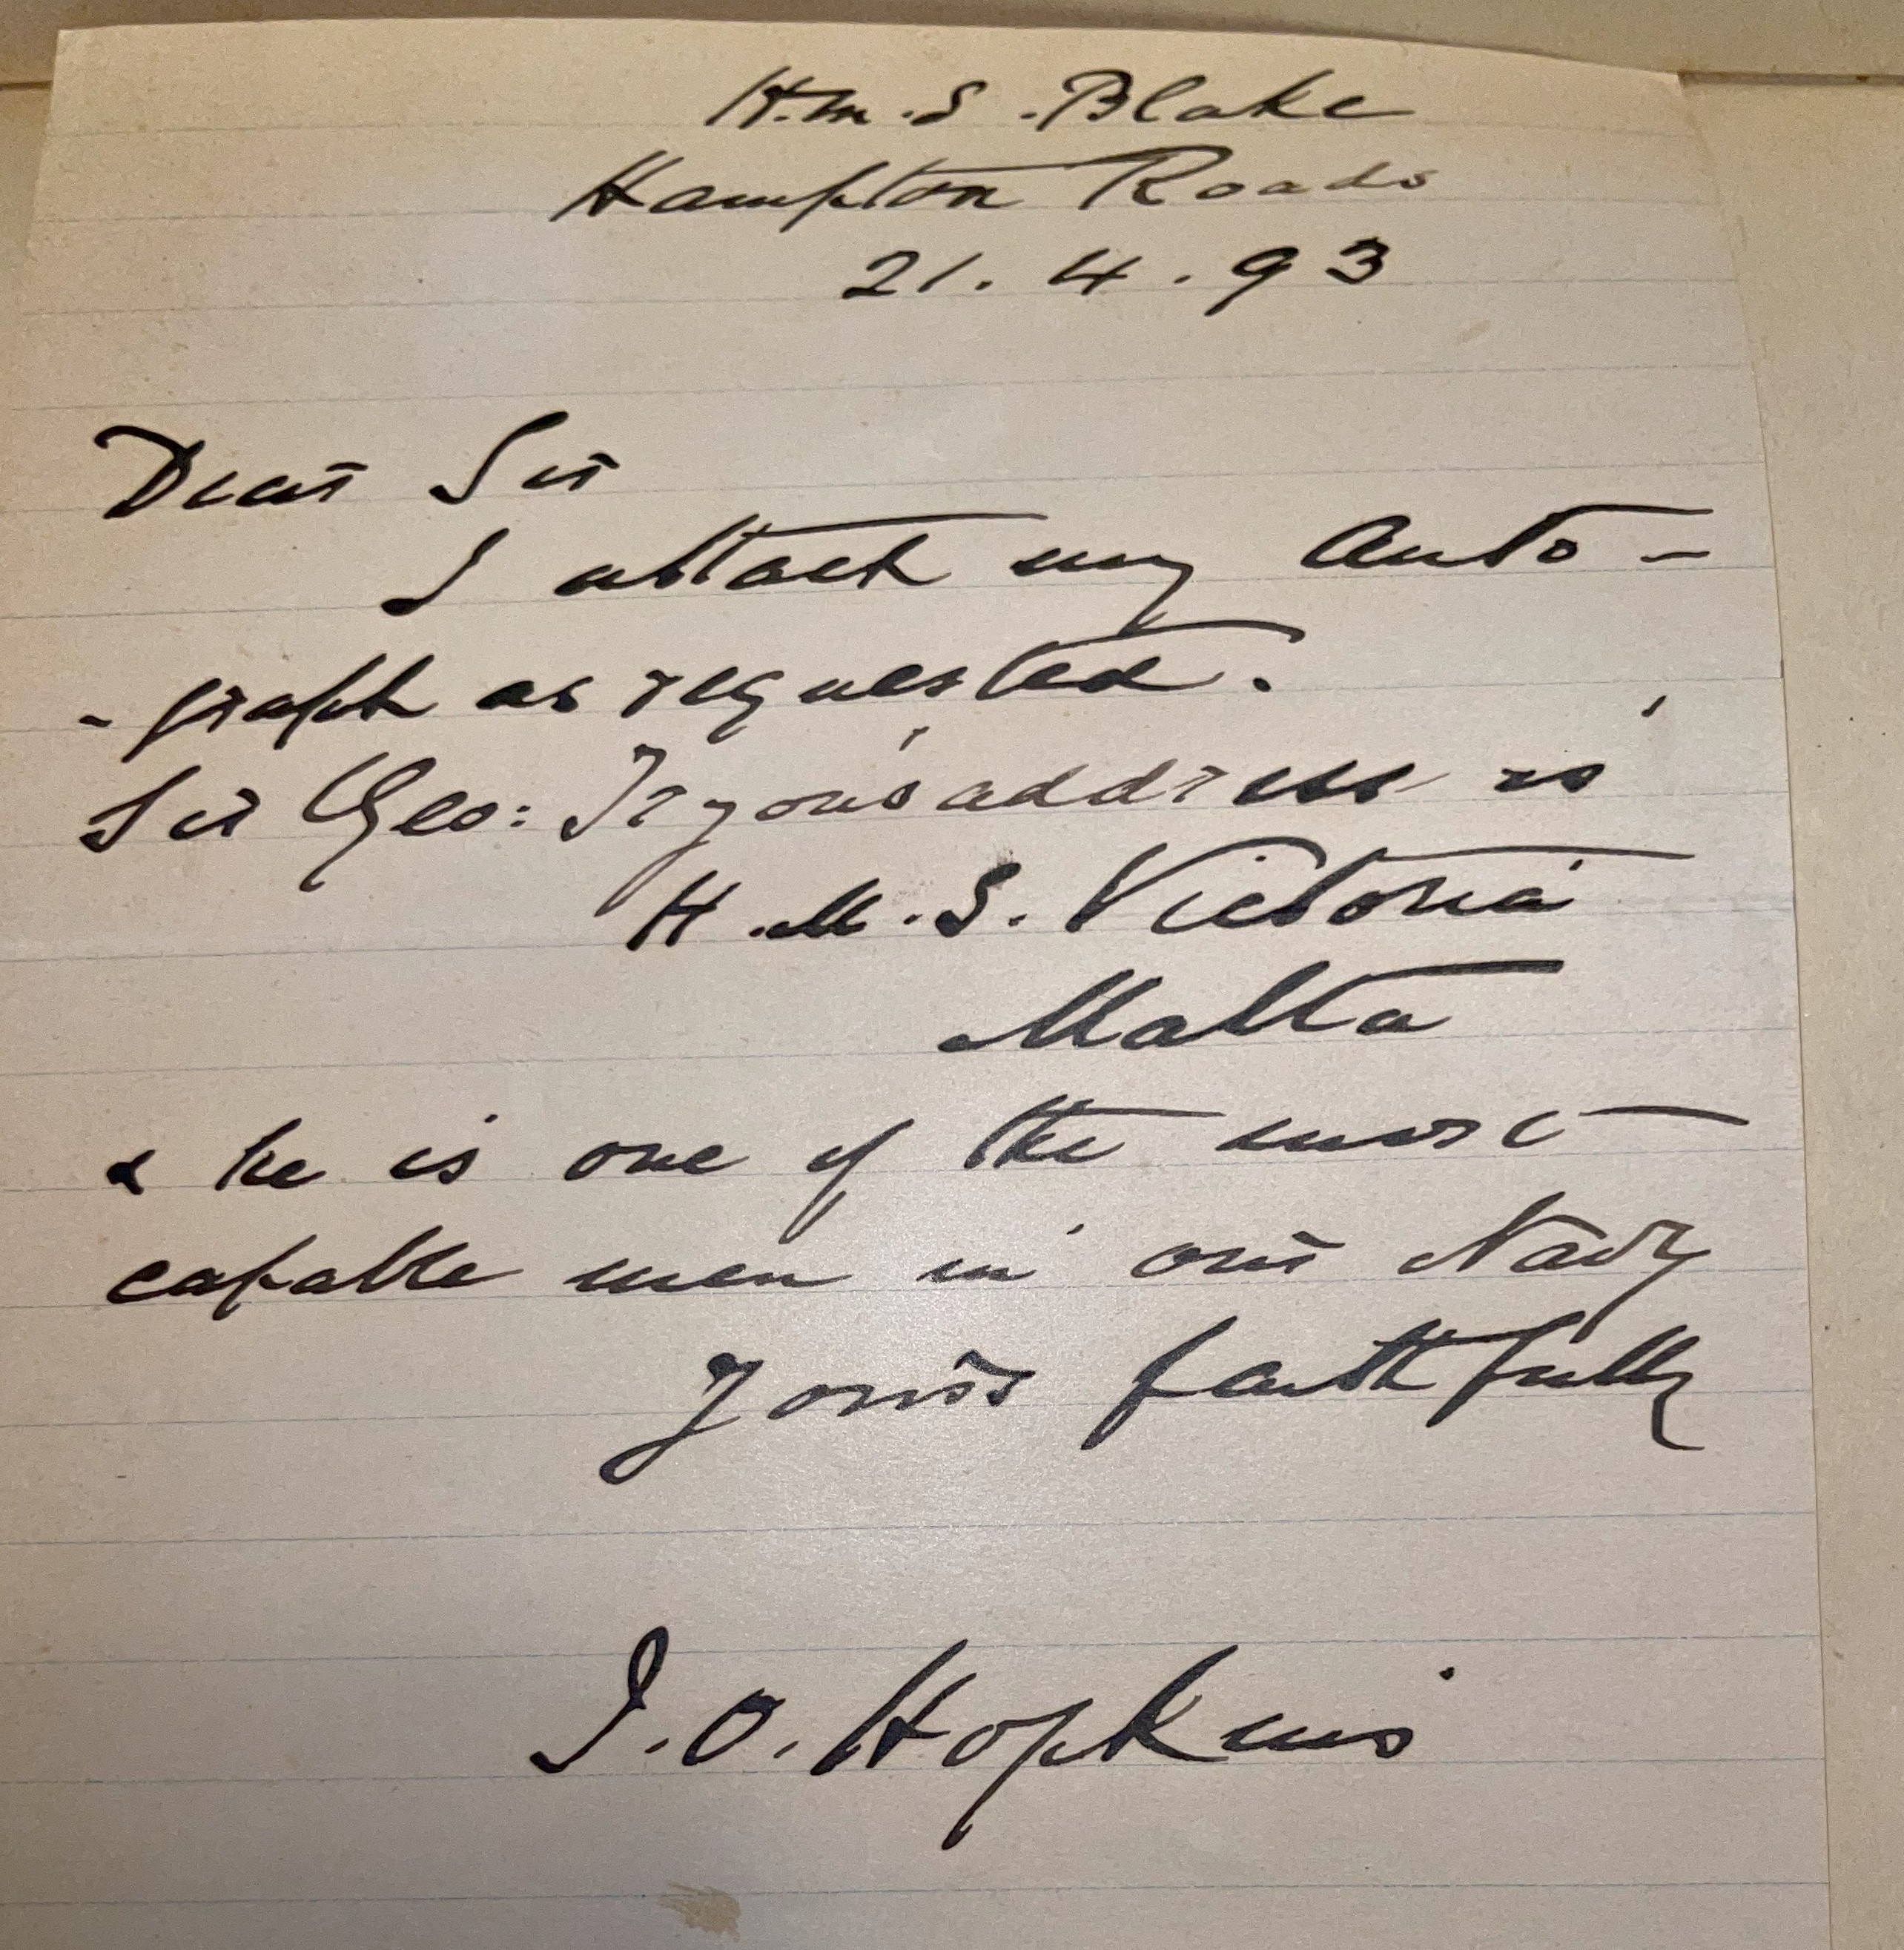 H.M.S. Blake
Hampton Roads
21. 4. 93
Dear Sir
I attach my Auto-
-graph as requested.
Sir Geo: Tryon's address is
H.M.S. Victoria
Malta
& he is one of the most
capable men in our Navy
Yours faithfully
J.O. Hopkins